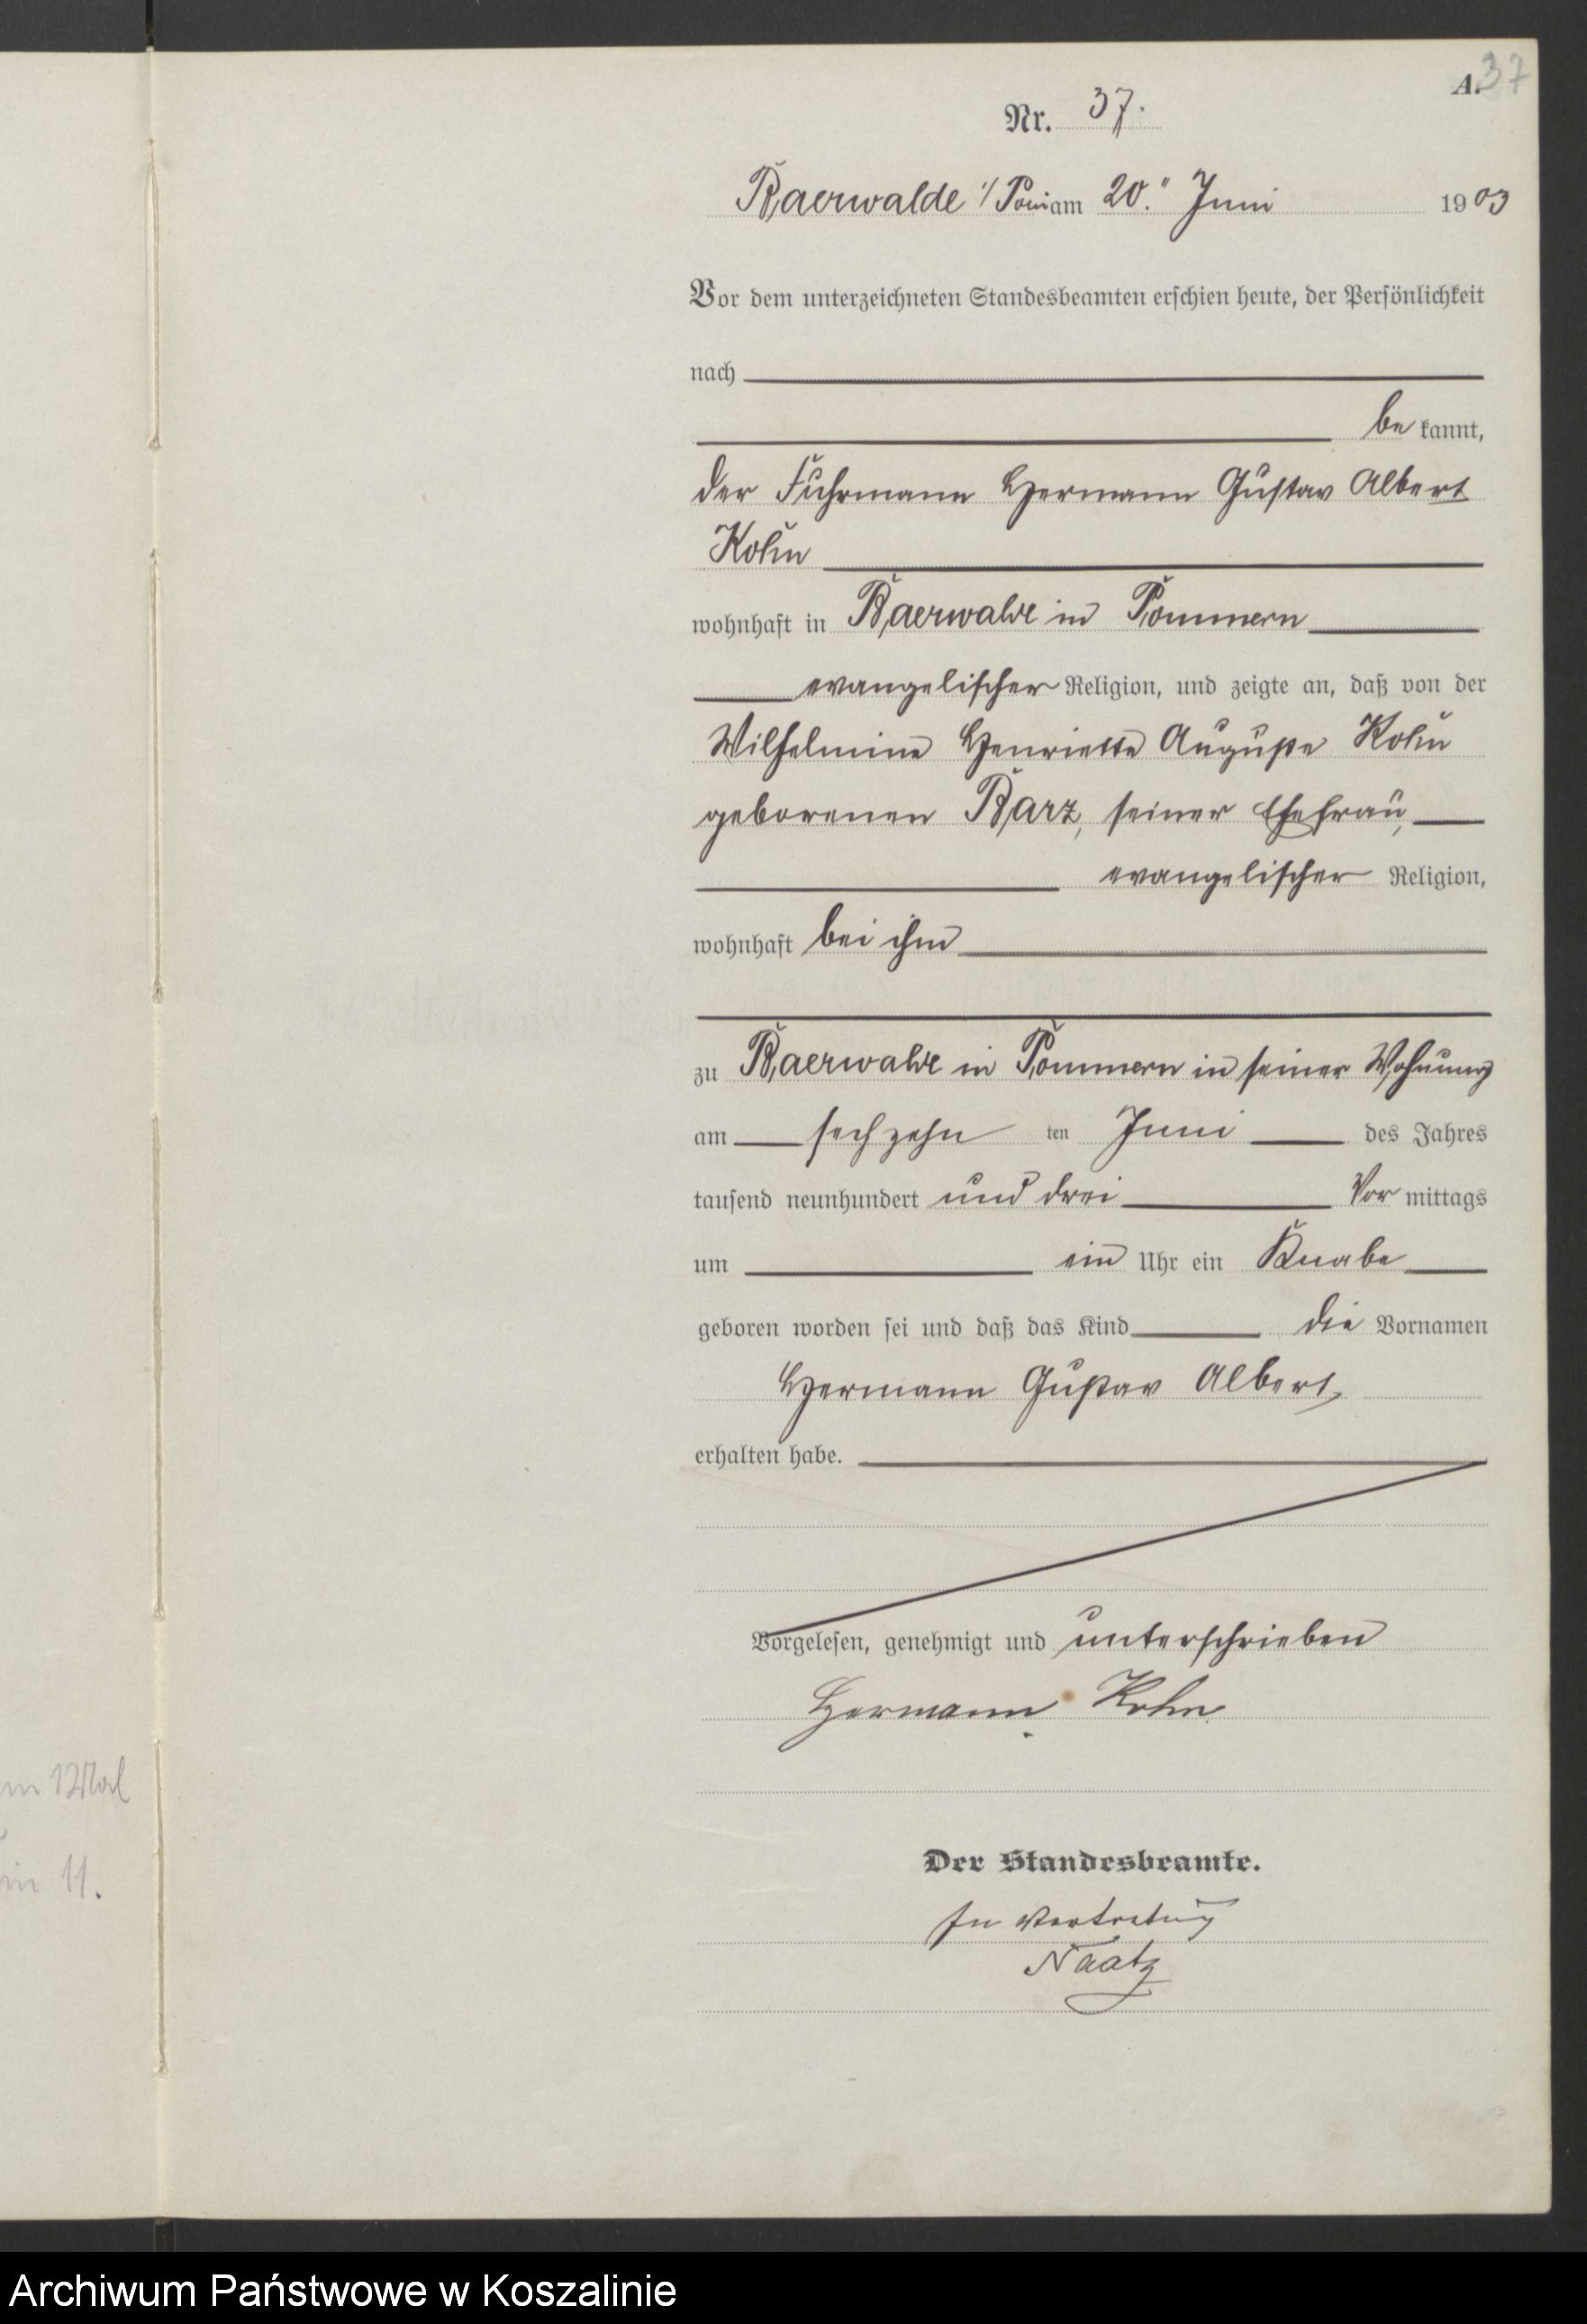 A. 37
Nr. 37.
Baerwalde i/Pom am 20. Juni 1903
Vor dem unterzeichneten Standesbeamten erschien heute, der Persönlichkeit
nach
be kannt,
der Fuhrmann Hermann Gustav Albert
Kohn
wohnhaft in Baerwalde in Pommern
evangelischer Religion, und zeigte an, daß von der
Wilhelmine Henriette Auguste Kohn
geborenen Barz, seiner Ehefrau,
evangelischer Religion,
wohnhaft bei ihm
zu Baerwalde in Pommern in seiner Wohnung
am sechzehn ten Juni des Jahres
tausend neunhundert und drei Vor mittags
um ein Uhr ein Knabe
geboren worden sei und daß das Kind die Vornamen
Hermann Gustav Albert
erhalten habe.
Vorgelesen, genehmigt und unterschrieben
Hermann Kohn
Der Standesbeamte.
In Vertretung
Naatz
11.
Archiwum Państwowe w Koszalinie